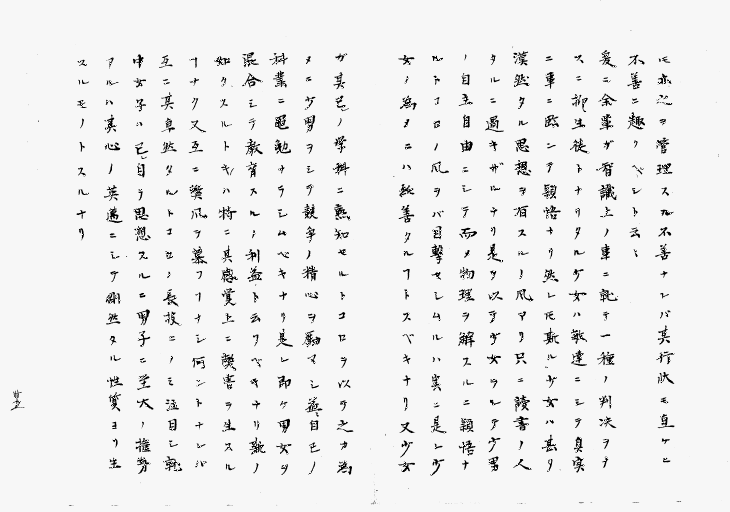 モ亦之ヲ管理スル不善ナレバ其行状モ直ケニ
不善ニ趣クベシト云々
爰ニ余輩ガ智識上ノ事ニ就テ一種ノ判决ヲナ
スニ抑生徒トナリタル少女ハ敏達ニシテ真実
ニ事ニ臨ンデ穎悟ナリ然レ𪜈斯ル少女ハ甚タ
漠然タル思想ヲ有スルノ風アリ只ニ讀書ノ人
タルニ過キザルナリ是ヲ以テ少女ヲシテ少男
ノ自主自由ニシテ而メ物理ヲ解スルニ穎悟ナ
ルトコロノ風ヲバ目撃セシムルハ実ニ是レ少
女ノ為メニハ純善タルヿトスベキナリ又少女
ガ其己ノ学科ニ熟知セルトコロヲ以テ之カ為
メニ少男ヲシテ競争ノ精心ヲ勵マシ益自己ノ
科業ニ黽勉ナラシムベキナリ是レ即ケ男女ヲ
混合シテ教育スルノ利益ト云ウベキナリ斯ノ
如クスルトキハ特ニ其感覚上ニ誤害ヲ生スル
ヿナク又互ニ獎風ヲ慕フヿナシ何ントナレバ
互ニ其卓然タルトコロノ長技ニノミ注目シ就
中女子ハ己自ラ思想スルニ男子ニ至大ノ権勢
アルハ其心ノ英邁ニシテ剛然タル性質ヨリ生
スルモノトスルナリ
廿五